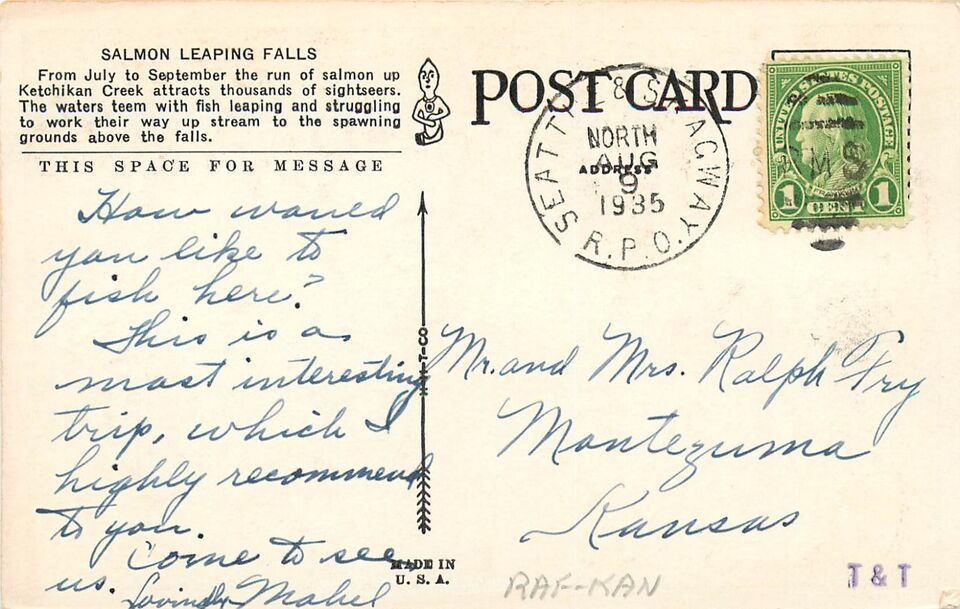 SALMON LEAPING FALLS
From July to September the run of salmon up
Ketchikan Creek attracts thousands of sightseers.
The waters teem with fish leaping and struggling
to work their way up stream to the spawning
grounds above the falls.
THIS SPACE FOR MESSAGE
How would
you like to
fish here?
This is a
most interesting
trip, which I
highly recommend
to you.
Come to see
us. Lovingly Mabel
POST CARD
ADDRESS
SEATTLE & SKAGWAY R.P.O.
NORTH
AUG
9
1935
UNITED STATES POSTAGE
FRANKLIN
1 CENT 1
Mr. and Mrs. Ralph Fry
Montezuma
Kansas
MADE IN
U. S. A.
RAF-KAN
T & T